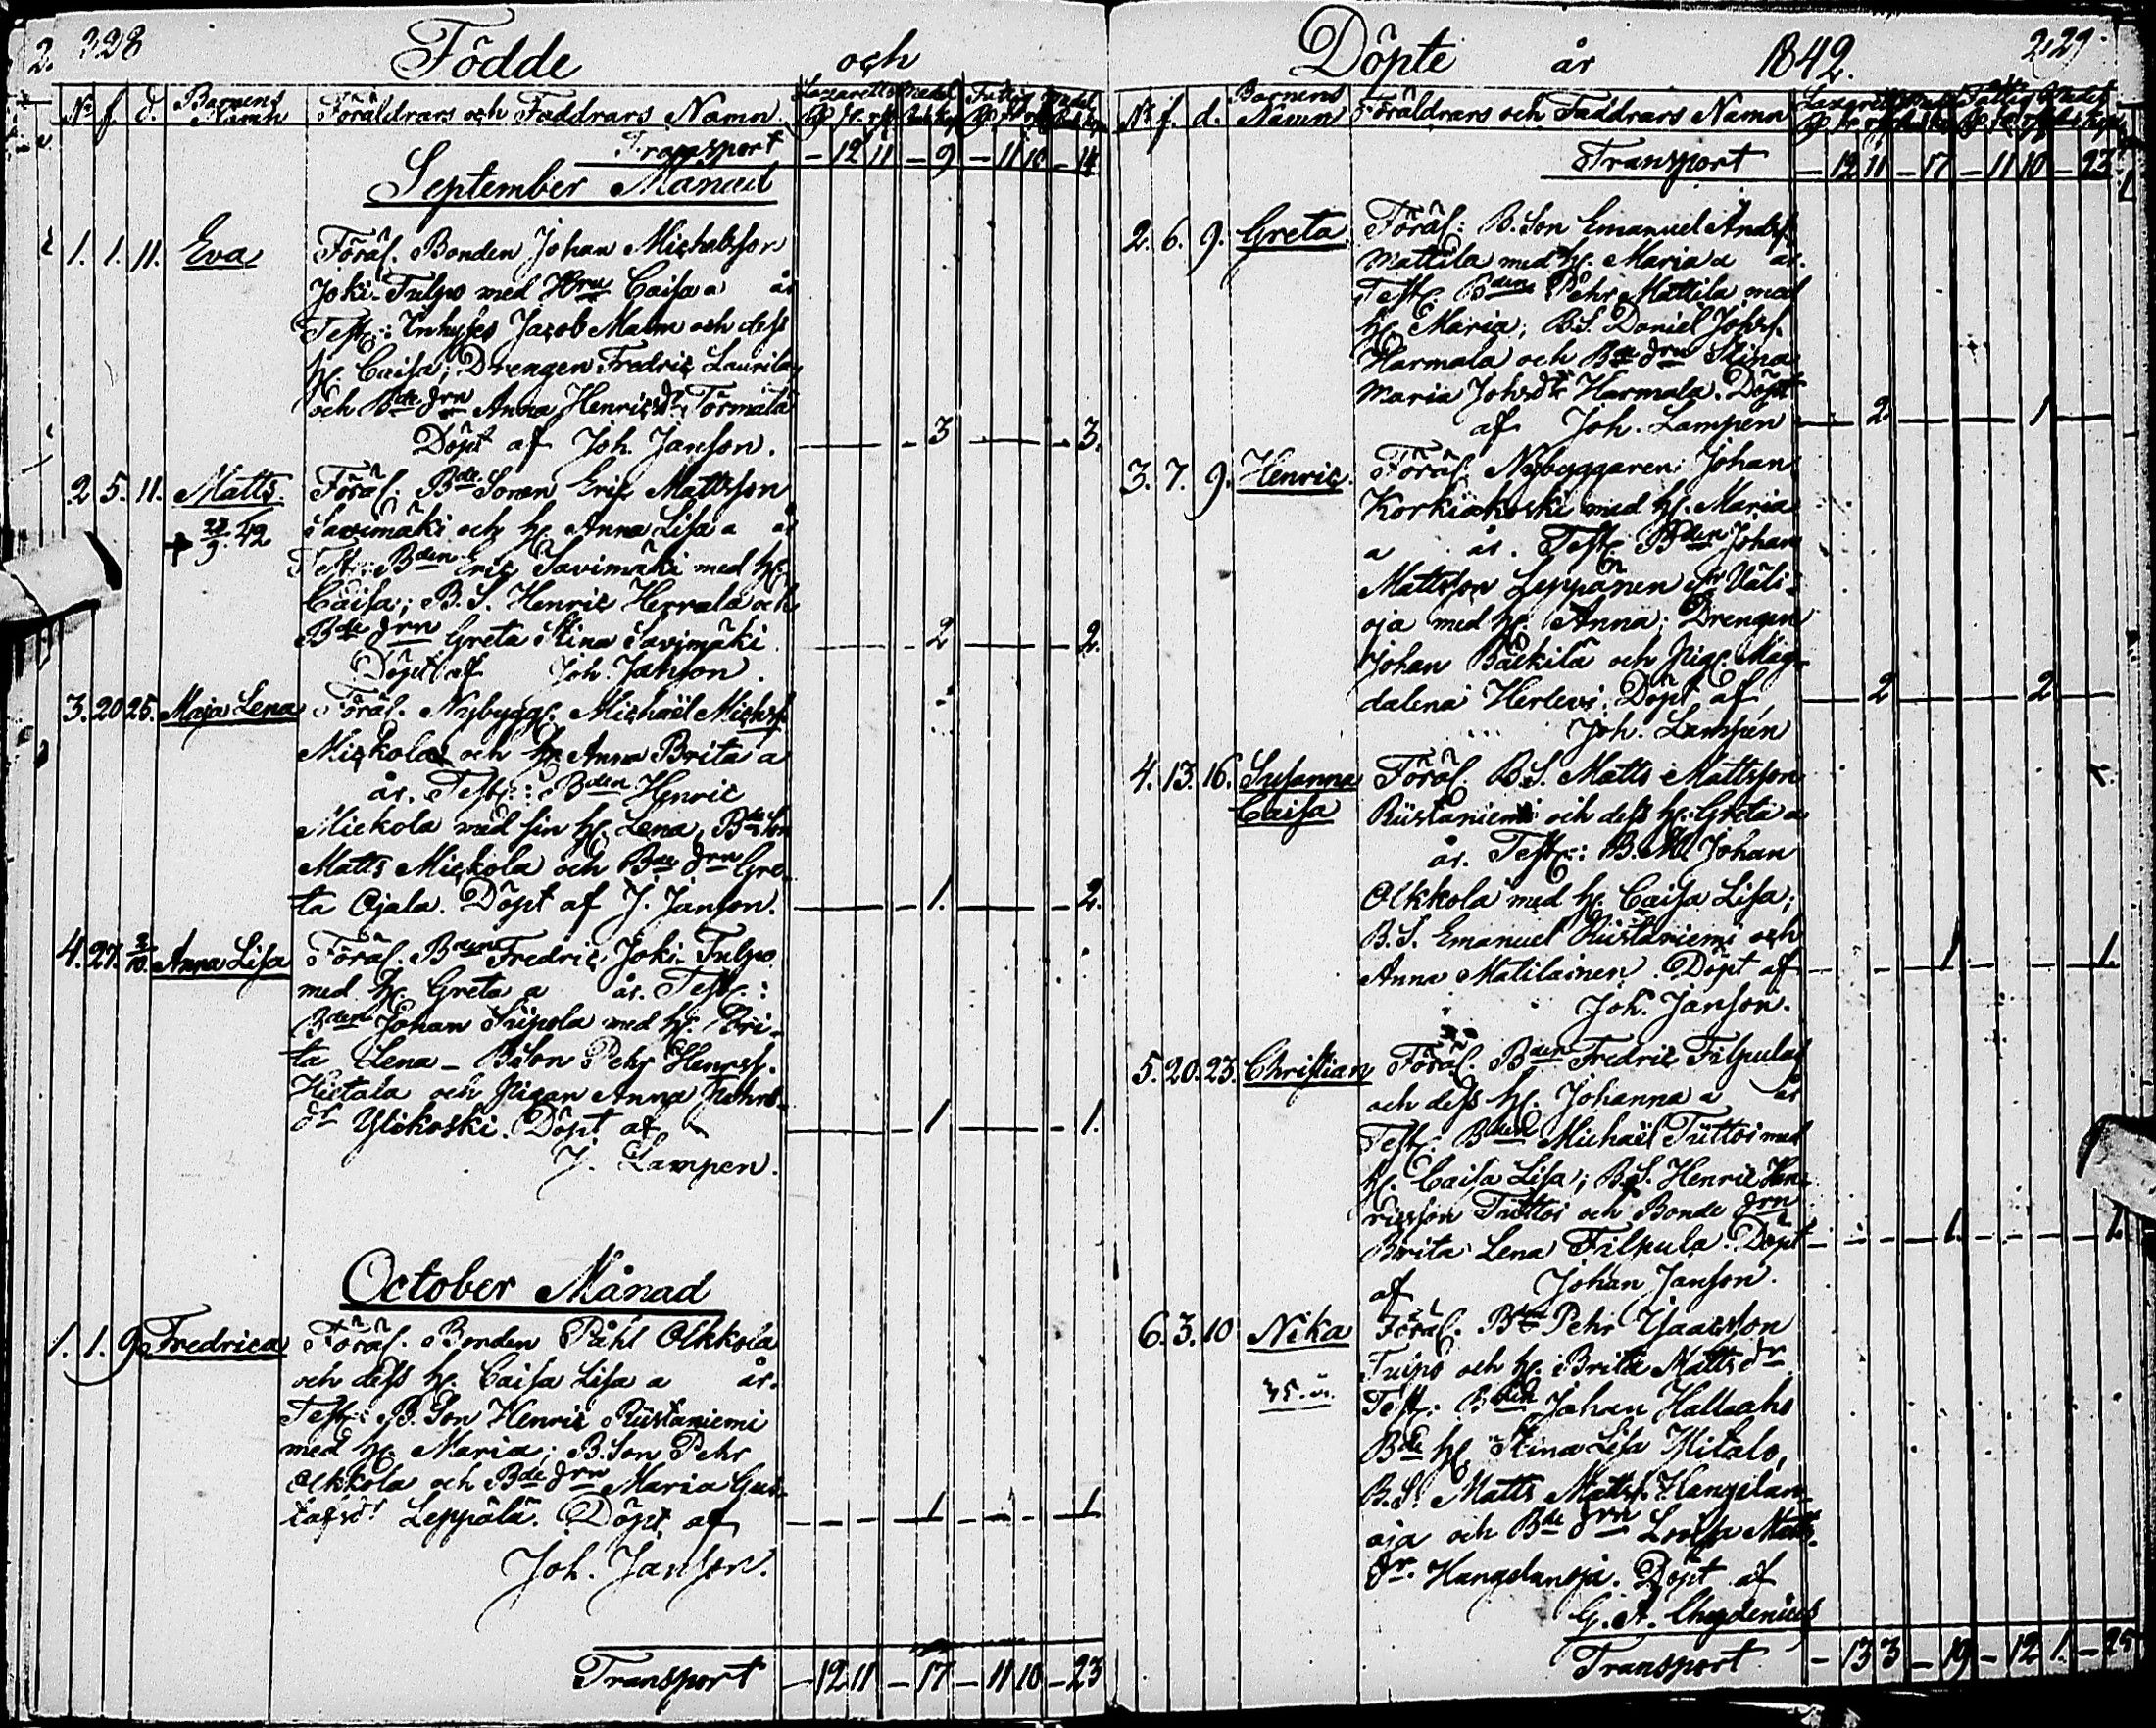 328
Födde och
No f. d. Barnens Namn Föräldrars och Faddrars Namn
Transport - 12 11 - 9 - 11 10 - 14
September Månad
1. 1. 11. Eva Föräl. Bonden Johan Michelsson
Joki-Tulpo med Hru Caisa a år
Test: Inhyses Jacob Malm och dess
h. Caisa; Drengen Fredric Laurila
och Bde drn Anna Henricsdr Törmälä
Döpt af Joh. Janson. 3 3.
2 5. 11. Matts. Föräl: Bde Sonen Eric Mattsson
+ 23/9. 42 Savimäki och h. Anna Lisa a år
Test: Bden Eric Savimäki med h.
Caisa; B. S. Henric Herrala och
Bde drn Greta Stina Savimäki 2 2.
Döpt af Joh. Janson.
3. 20 25. Maja Lena Föräl. Nybygg. Michaël Michss.
Mickola och h. Anna Brita a
år. Test: Bden Henric
Mickola med sin h. Lena, Bde Son
Matts Mickola och Bde drn Gre-
ta Ojala. Döpt af J. Janson. 1. 2.
4. 27. 2/10. Anna Lisa Föräl. Bden Fredric Joki-Tulpo
med h. Greta a år. Test:
Bden Johan Sripola med h. Bri-
ta Lena - B Son Pehr Henrss.
Hietala och Pigan Anna
dr Ylikoski. Döpt af 1 1.
J. Lampen.
October Månad
1. 1. 9. Fredrica Föräl. Bonden Påhl Olkkola
och dess h. Caisa Lisa a år.
Test: B. Son Henric Riistaniemi
med h. Maria; B. Son Pehr
Olkkola och Bde drn Maria Gus-
tafsdr Leppälä. Döpt af 1 1
Joh. Janson.
Transport - 12 11 - 17 - 11 10 - 23
Döpte år 1842. 229.
No f. d. Barnens Namn Föräldrars och Faddrars Namn
Transport - 12 11 - 17 - 11 10 - 23
2. 6. 9. Greta. Föräl: B. Son Emanuel Andss.
Mattila med h. Maria a år.
Test. Bden Pehr Mattila med
h. Maria; B. S. Daniel Johss.
Harmala och Bde drn Stina
Maria Johsdr Harmala. Döpt
af Joh. Lampen 2. 1
3. 7. 9. Henric. Föräl. Nybyggaren Johan
Korkiakoski med h. Maria
a år. Test. Bden Johan
Mattsson Leppänen fr Väli-
oja med h. Anna; Drengen
Johan Bäckilä och Pig. Mag-
dalena Herlevi. Döpt af 2 2
Joh. Lampén
4. 13. 16. Susanna Föräl. B. S. Matts Mattsson
Caisa Riistaniemi och dess h. Greta a
år. Test: B. M. Johan
Olkkola med h. Caisa Lisa;
B. S. Emanuel Riistaniemi och
Anna Matilainen. Döpt af 1 1.
Joh. Janson.
5. 20. 23. Christian Föräl. Bden Fredric Filpula
och dess h. Johanna a år
Test: Bden Michaël Tüttoi med
h. Caisa Lisa; B. S. Henric Hen-
ricsson Tüttoi och Bonde drn
Brita Lena Filpula. Döpt 1. 1.
af Johan Janson.
6. 3. 10 Nika Föräl. Bde Pehr Isaacsson
och h. Brita Matts dr
35. å. Test: Bden Johan Hallaaho
Bde h. Stina Lisa Hitalo,
B. S. Matts Mattss. Hangelan-
oja och Bde drn Lovisa Matts
dr. Hangelanoja. Döpt af
G. A. Chydenius
Transport - 13 3 - 19 - 12 1. - 25